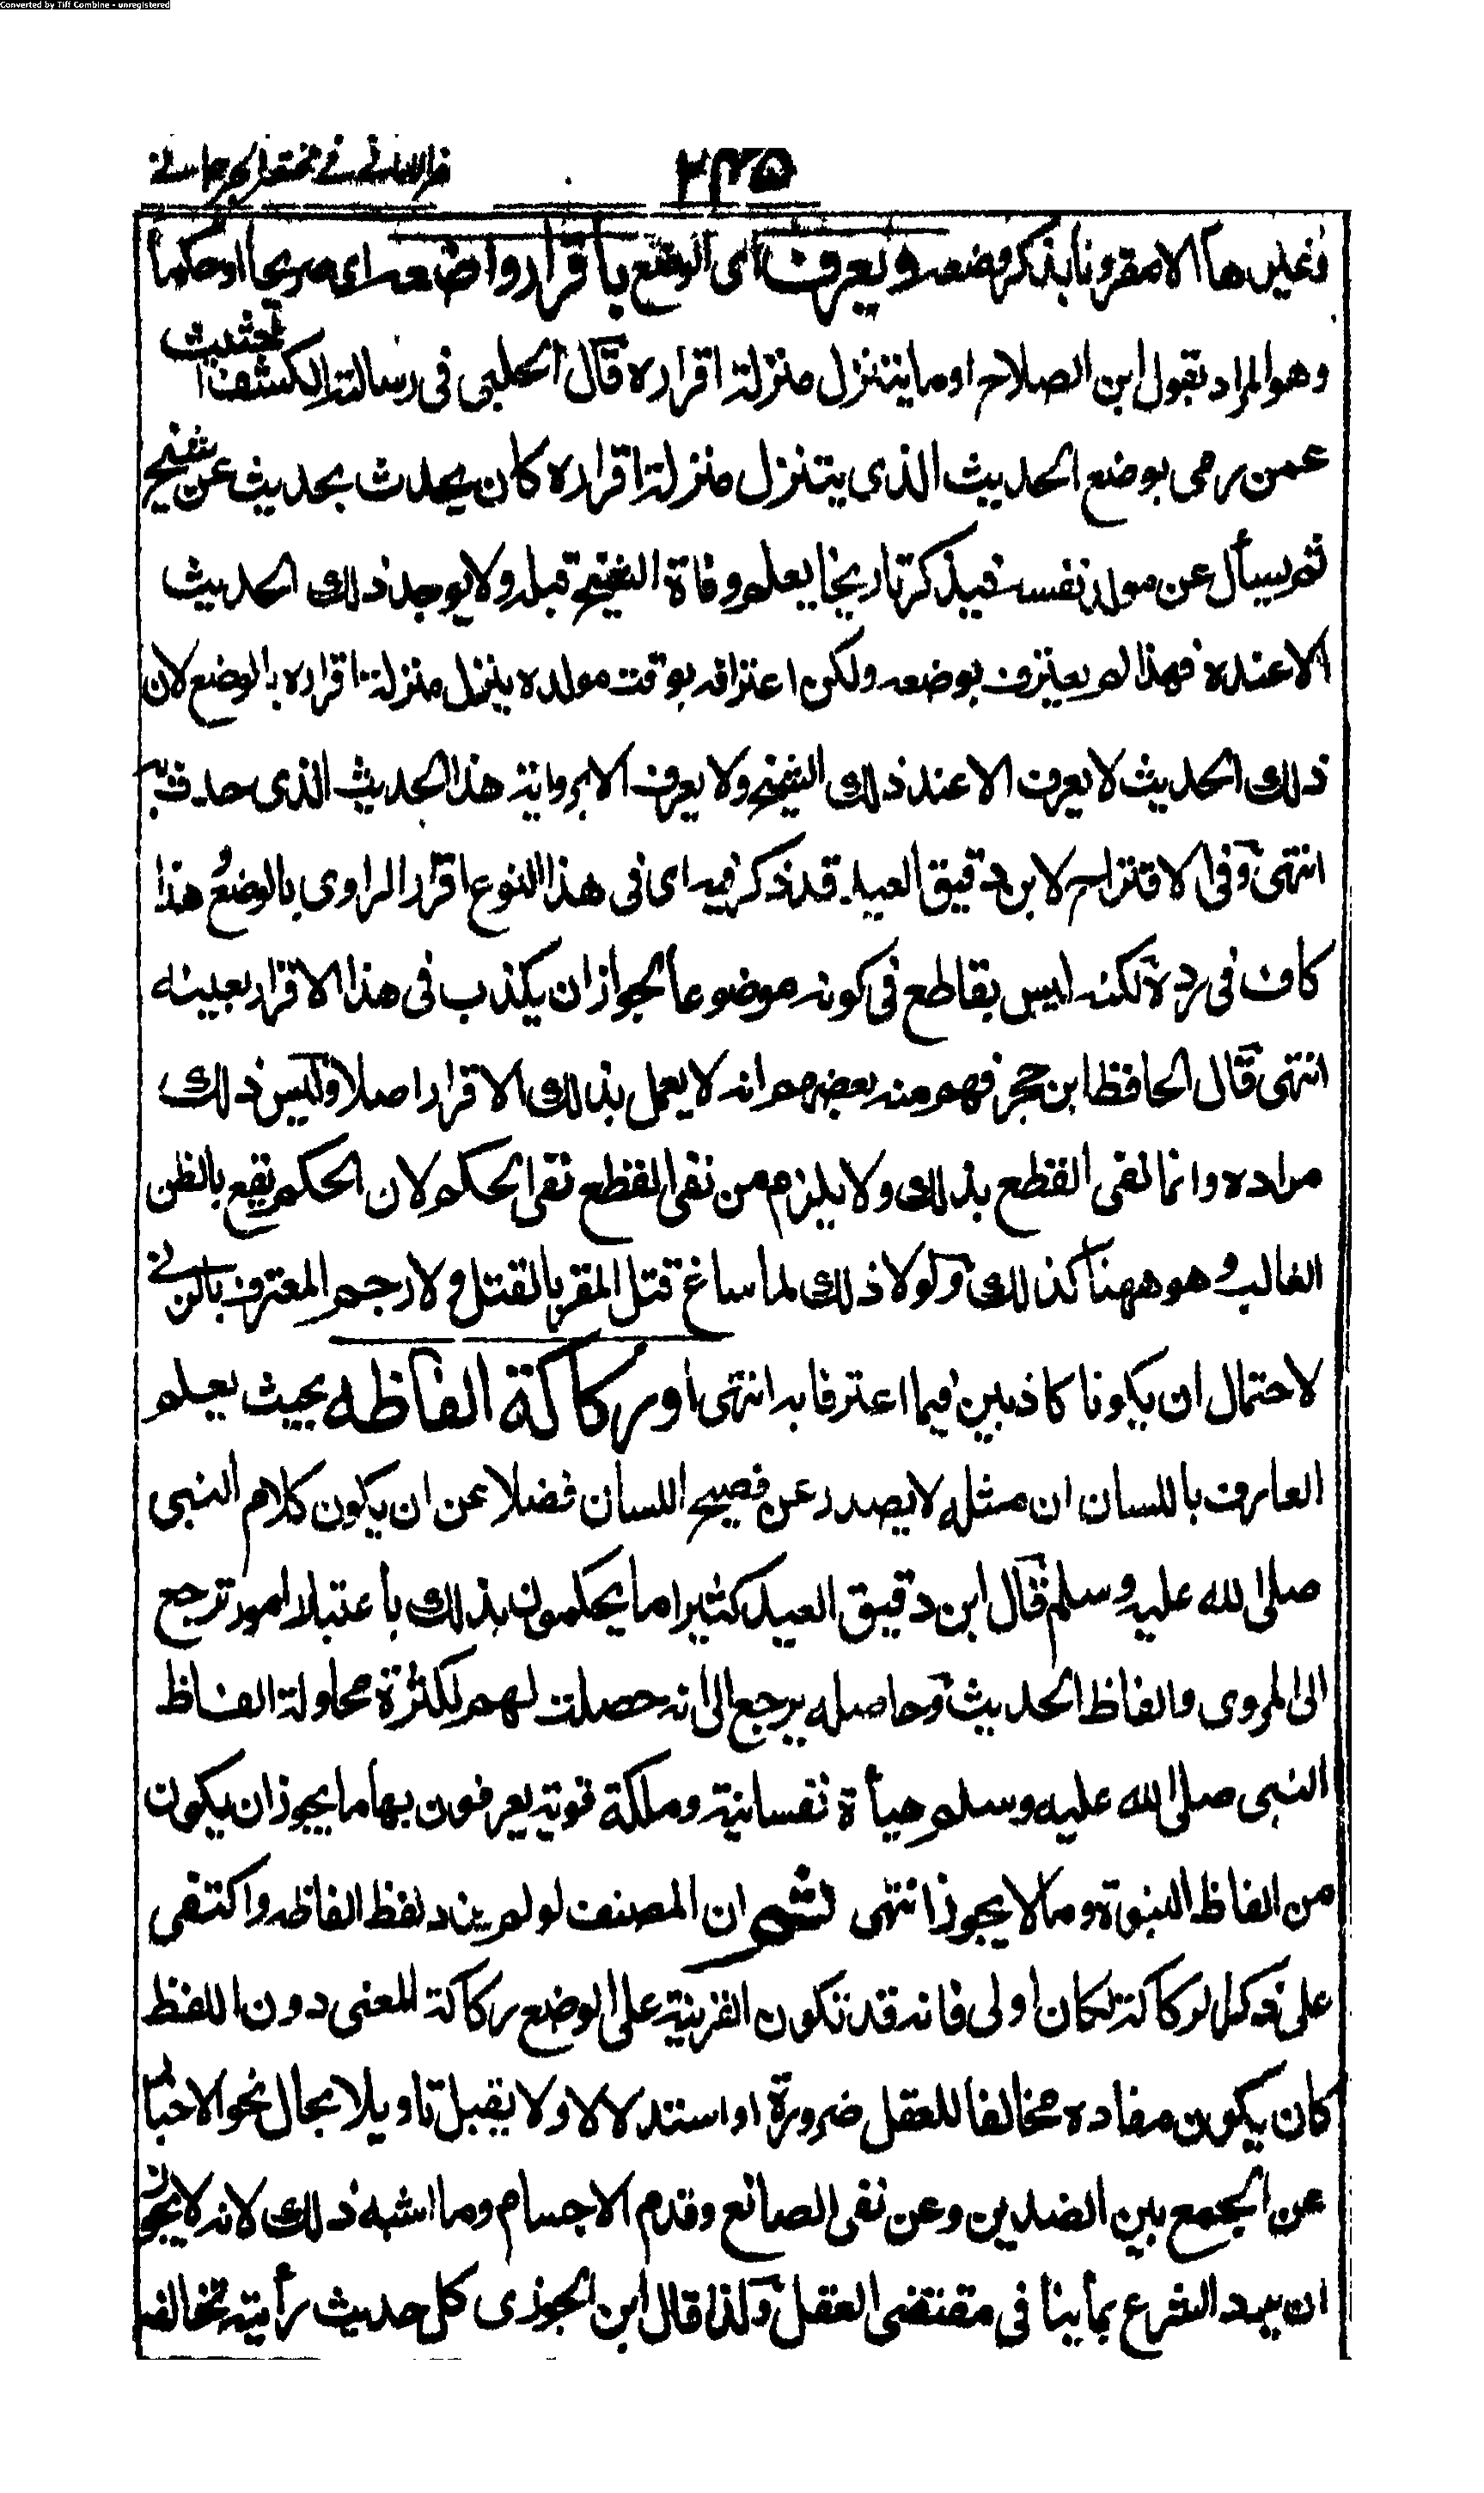 Converted by Tiff Combine - unregistered
ظفر الاماني في مختصر الجرجاني
٢٣٥
وغيرها الا مقرونا بذكر وضعه ويعرف اى الوضع باقرار واضعه اى صريحا او حكما
وهو المراد بقول ابن الصلاح او ما يتنزل منزلة اقراره قال الحلبى فى رسالة الكشف الحثيث
عمن رمى بوضع الحديث الذى يتنزل منزلة اقراره كان يحدث بحديث عن شيخ
ثم يسأل عن مولد نفسه فيذكر تاريخا يعلم وفاة الشيخ قبله ولا يوجد ذلك الحديث
الا عنده فهذا لم يعترف بوضعه ولكن اعترافه بوقت مولده ينزل منزلة اقراره بالوضع لان
ذلك الحديث لا يعرف الا عند ذلك الشيخ ولا يعرف الا برواية هذا الحديث الذى حدث به
انتهى وفى الاقتراح لابن دقيق العيد قد ذكر فيه اى فى هذا النوع اقرار الراوى بالوضع هذا
كاف فى رده لكنه ليس بقاطع فى كونه موضوعا لجواز ان يكذب فى هذا الاقرار بعينه
انتهى قال الحافظ ابن حجر فهم منه بعضهم انه لا يعمل بذلك الاقرار اصلا وليس ذلك
مراده وانما نفى القطع بذلك ولا يلزم من نفى القطع نفى الحكم لان الحكم يقع بالظن
الغالب وهو ههنا كذلك ولولا ذلك لما ساغ قتل المقر بالقتل ولا رجم المعترف بالزنى
لاحتمال ان يكونا كاذبين فيما اعترفا به انتهى او ركاكة الفاظه بحيث يعلم
العارف باللسان ان مثله لا يصدر عن فصيح اللسان فضلا عن ان يكون كلام النبى
صلى الله عليه وسلم قال ابن دقيق العيد كثيرا ما يحكمون بذلك باعتبار امور ترجع
الى المروى والفاظ الحديث وحاصله يرجع الى انه حصلت لهم لكثرة محاولة الفاظ
النبى صلى الله عليه وسلم هيأة نفسانية وملكة قوية يعرفون بها ما يجوز ان يكون
من الفاظ النبوة وما لا يجوز انتهى ثم ان المصنف لو لم يزد لفظ الفاظه واكتفى
على ذكر الركاكة لكان اولى فانه قد تكون القرينة على الوضع ركاكة المعنى دون اللفظ
كان يكون مفاده مخالفا للعقل ضرورة او استدلالا ولا يقبل تاويلا بحال نحو الاخبار
عن الجمع بين الضدين وعن نفى الصانع وقدم الاجسام وما اشبه ذلك لانه لا يجوز
ان يرد الشرع بما ينافى مقتضى العقل وكذا قال ابن الجوزى كل حديث رأيته تخالفه